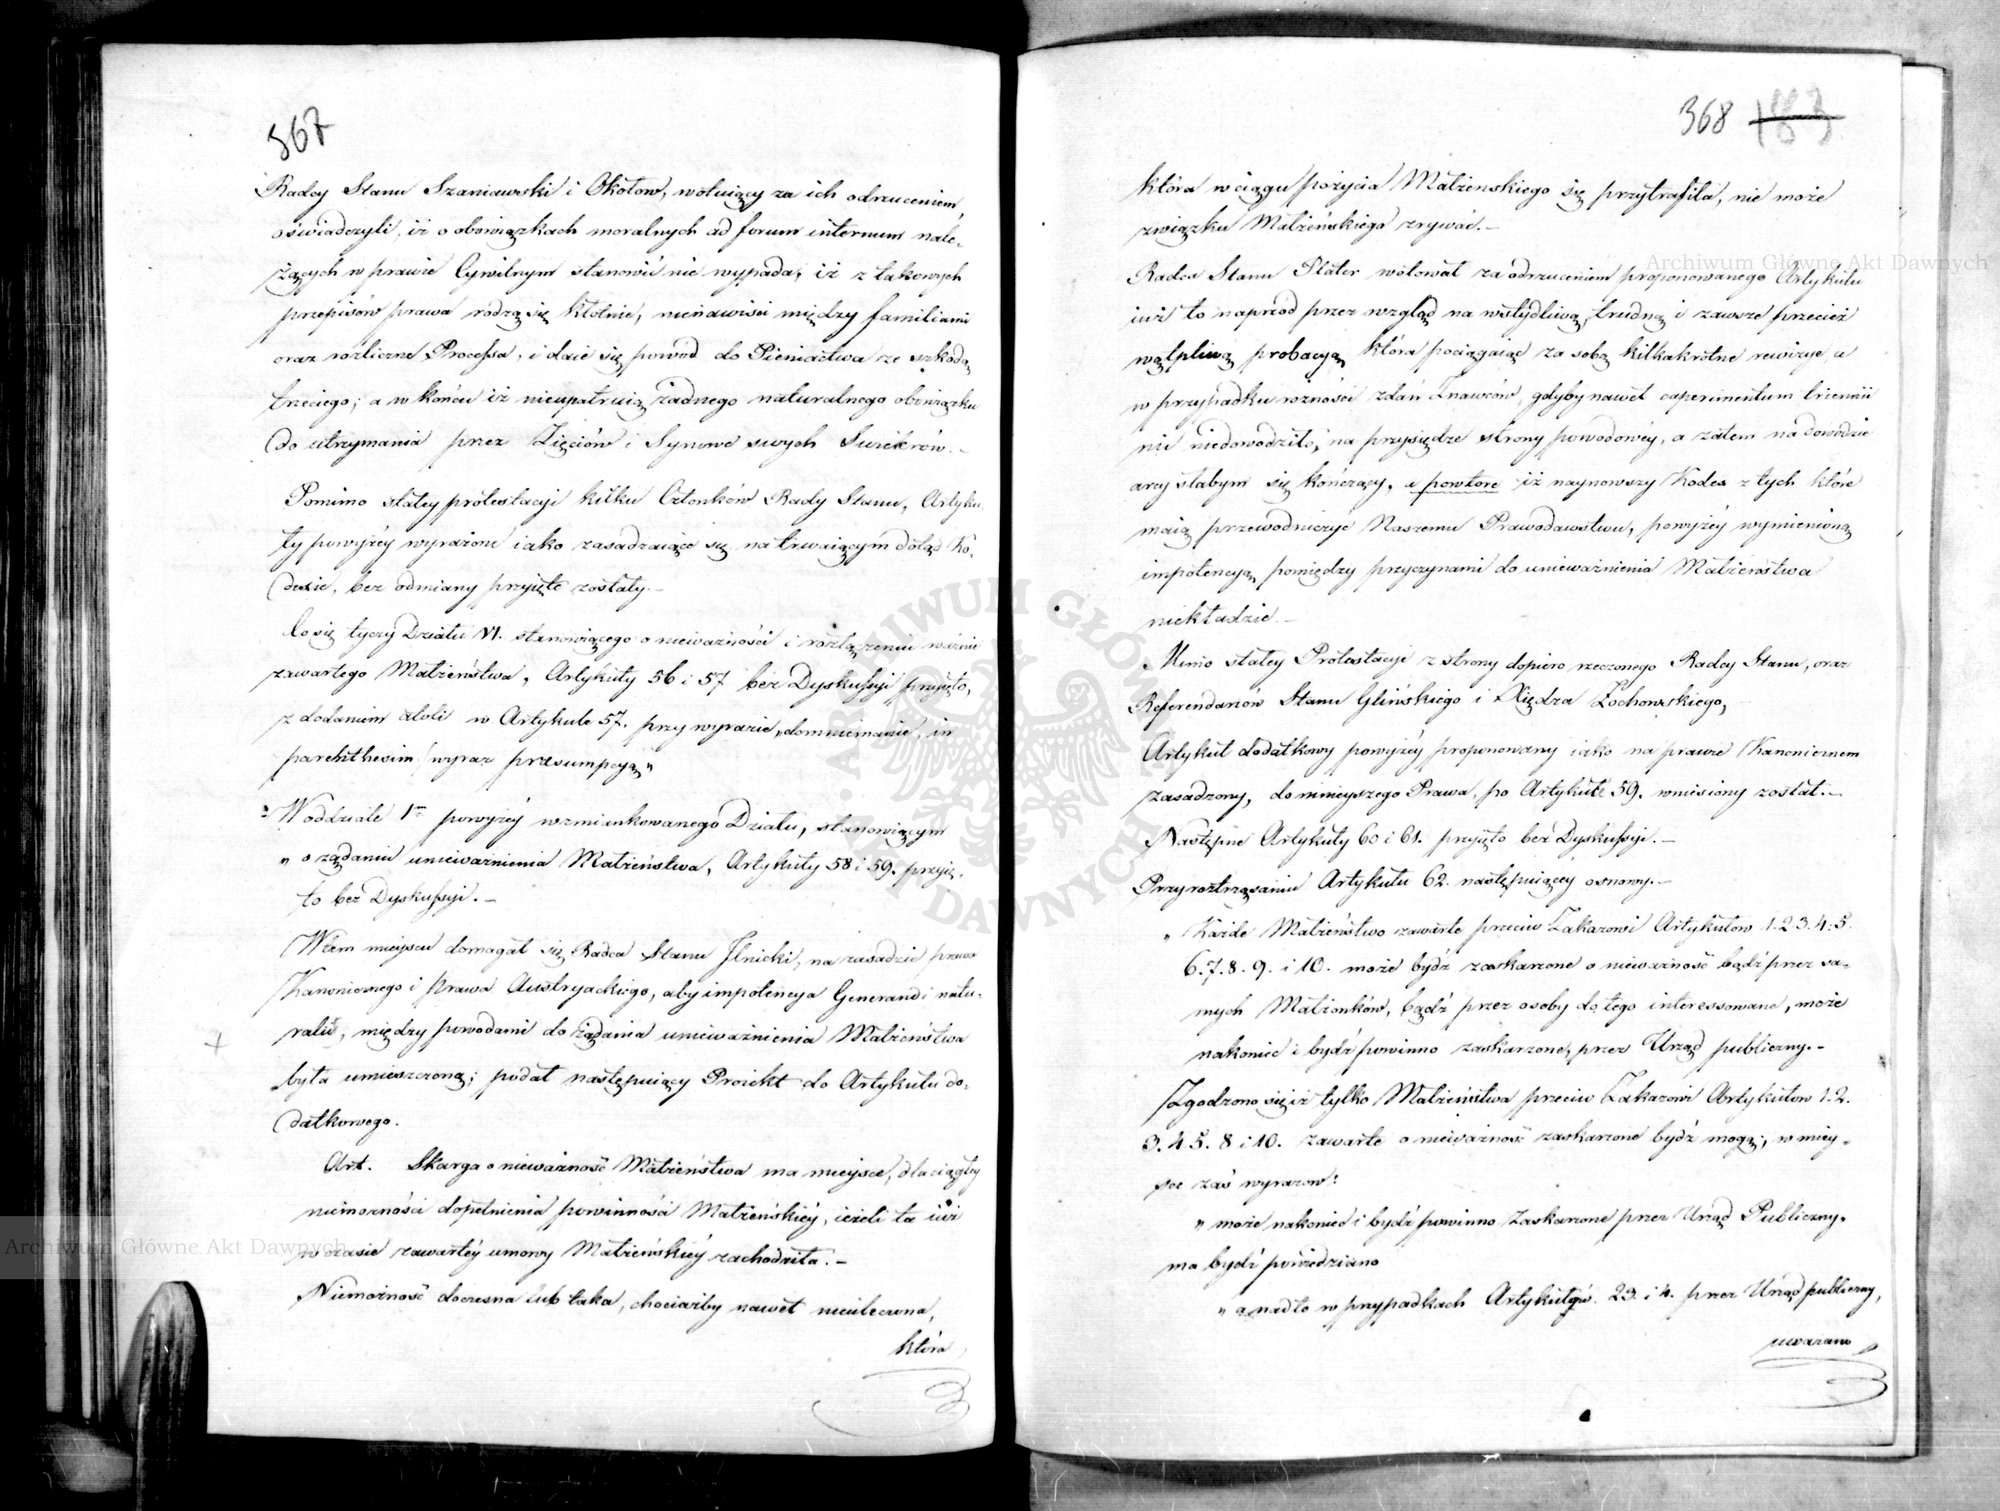 367
Radcy Stanu Szaniawski i Okołow, wotuiący za ich odrzuceniem,
oświadczyli, iż o obowiązkach moralnych ad forum internum nale-
żących w prawie Cywilnym stanowić nie wypada; iż z takowych
przepisów prawa rodzą się kłotnie, nienawiści między familiami
oraz rozliczne Processa, i daie się powod do Pieniactwa ze szkodą
trzeciego; a w końcu iż nieupatruią żadnego naturalnego obowiązku
do utrzymania przez Zięciów i Synowe swych Swiekrów.-
Pomimo stałey protestacyi kilku Członków Rady Stanu, Artyku
ły powyżey wyrażone iako zasadzaiące się na trwaiącym dotąd Ko,
dexie, bez odmiany przyięte zostały.-
Co się tyczy Działu VI. stanowiącego o nieważności i rozłączeniu ważnie
zawartego Małżeństwa, Artykuły 56 i 57 bez Dyskussyi przyięto,
z dodaniem atoli w Artykule 57. przy wyrazie „domniemanie, in
parenthesim /wyraz presumpcyą"
W oddziale 1m powyżey wzmiankowanego Działu, stanowiącym
" o żądaniu unieważnienia Małżeństwa, Artykuły 58 i 59. przyię-
to bez Dyskussyi.-
W tem mieyscu domagał się Radca Stanu Ilnicki, na zasadzie prawa
Kanonicznego i Prawa Austryackiego, aby impotencya Generandi natu-
ralis, między powodami do żądania unieważnienia Małżeństwa
była umieszczoną; podał następuiący Proiekt do Artykułu do-
datkowego.
Art. Skarga o nieważność Małżeństwa ma mieysce, dla ciągłey
niemożności dopełnienia powinności Małżeńskiéy, ieżeli ta iuż
w czasie zawartéy umowy Małżeńskiéy zachodziła.-
Niemożność doczesna lub taka, chociażby nawet nieuleczona,
która
368 183
która w ciągu pożycia Małżenskiego się przytrafiła, nie może
związku Małżeńskiego zrywać.-
Radca Stanu Plater wotował za odrzuceniem proponowanego Artykułu
iuż to naprzód przez wzgląd na wstydliwą, trudną i zawsze przecież
wątpliwą probacyą, która pociągaiąc za sobą kilkakrotne rewizye, a
w przypadku rożności zdań Znawców, gdyby nawet experimentum triennii
nic niedowodziło, na przysiędze strony powodowéy, a zatem na dowodzie
arcy słabym się kończący, a powtore iż naynowszy Kodex z tych które
maią przewodniczyć Naszemu Prawodawstwu, powyżéy wymienioną
impotencyą, pomiędzy przyczynami do unieważnienia Małżeństwa
niekładzie.-
Mimo stałey Protestacyi z strony dopiero rzeczonego Radcy Stanu, oraz
Referendarzów Stanu Glińskiego i Xiędza Żochowskiego,
Artykuł dodatkowy powyżéy proponowany iako na prawie Kanonicznem
zasadzony, do ninieyszego Prawa, po Artykule 59. wniesiony został.-
Następne Artykuły 60 i 61. przyięto bez Dyskussyi.-
Przy roztrząsaniu Artykułu 62. następuiącéy osnowy.-
„ Każde Małżeństwo zawarte przeciw Zakazowi Artykułow 1. 2. 3. 4. 5.
6. 7. 8. 9. i 10. może bydź zaskarżone o nieważność bądź przez sa-
mych Małżonków, bądź przez osoby do tego interessowane, może
nakoniec i bydź powinno zaskarżone, przez Urząd publiczny.-
Zgodzono się iż tylko Małżeństwa przeciw Zakazowi Artykułow 1. 2.
3. 4. 5. 8 i 10. zawarte o nieważność zaskarzone bydź mogą; w miey-
sce zaś wyrazow:
„ może nakoniec i bydź powinno Zaskarżone przez Urząd Publiczny.
ma bydź powiedziano
„ a nadto w przypadkach Artykułów. 2. 3. i 4. przez Urząd publiczny,
uważano
Archiwum Główne Akt Dawnych
Archiwum Główne Akt Dawnych
ARCHIWUM GŁÓWNE AKT DAWNYCH